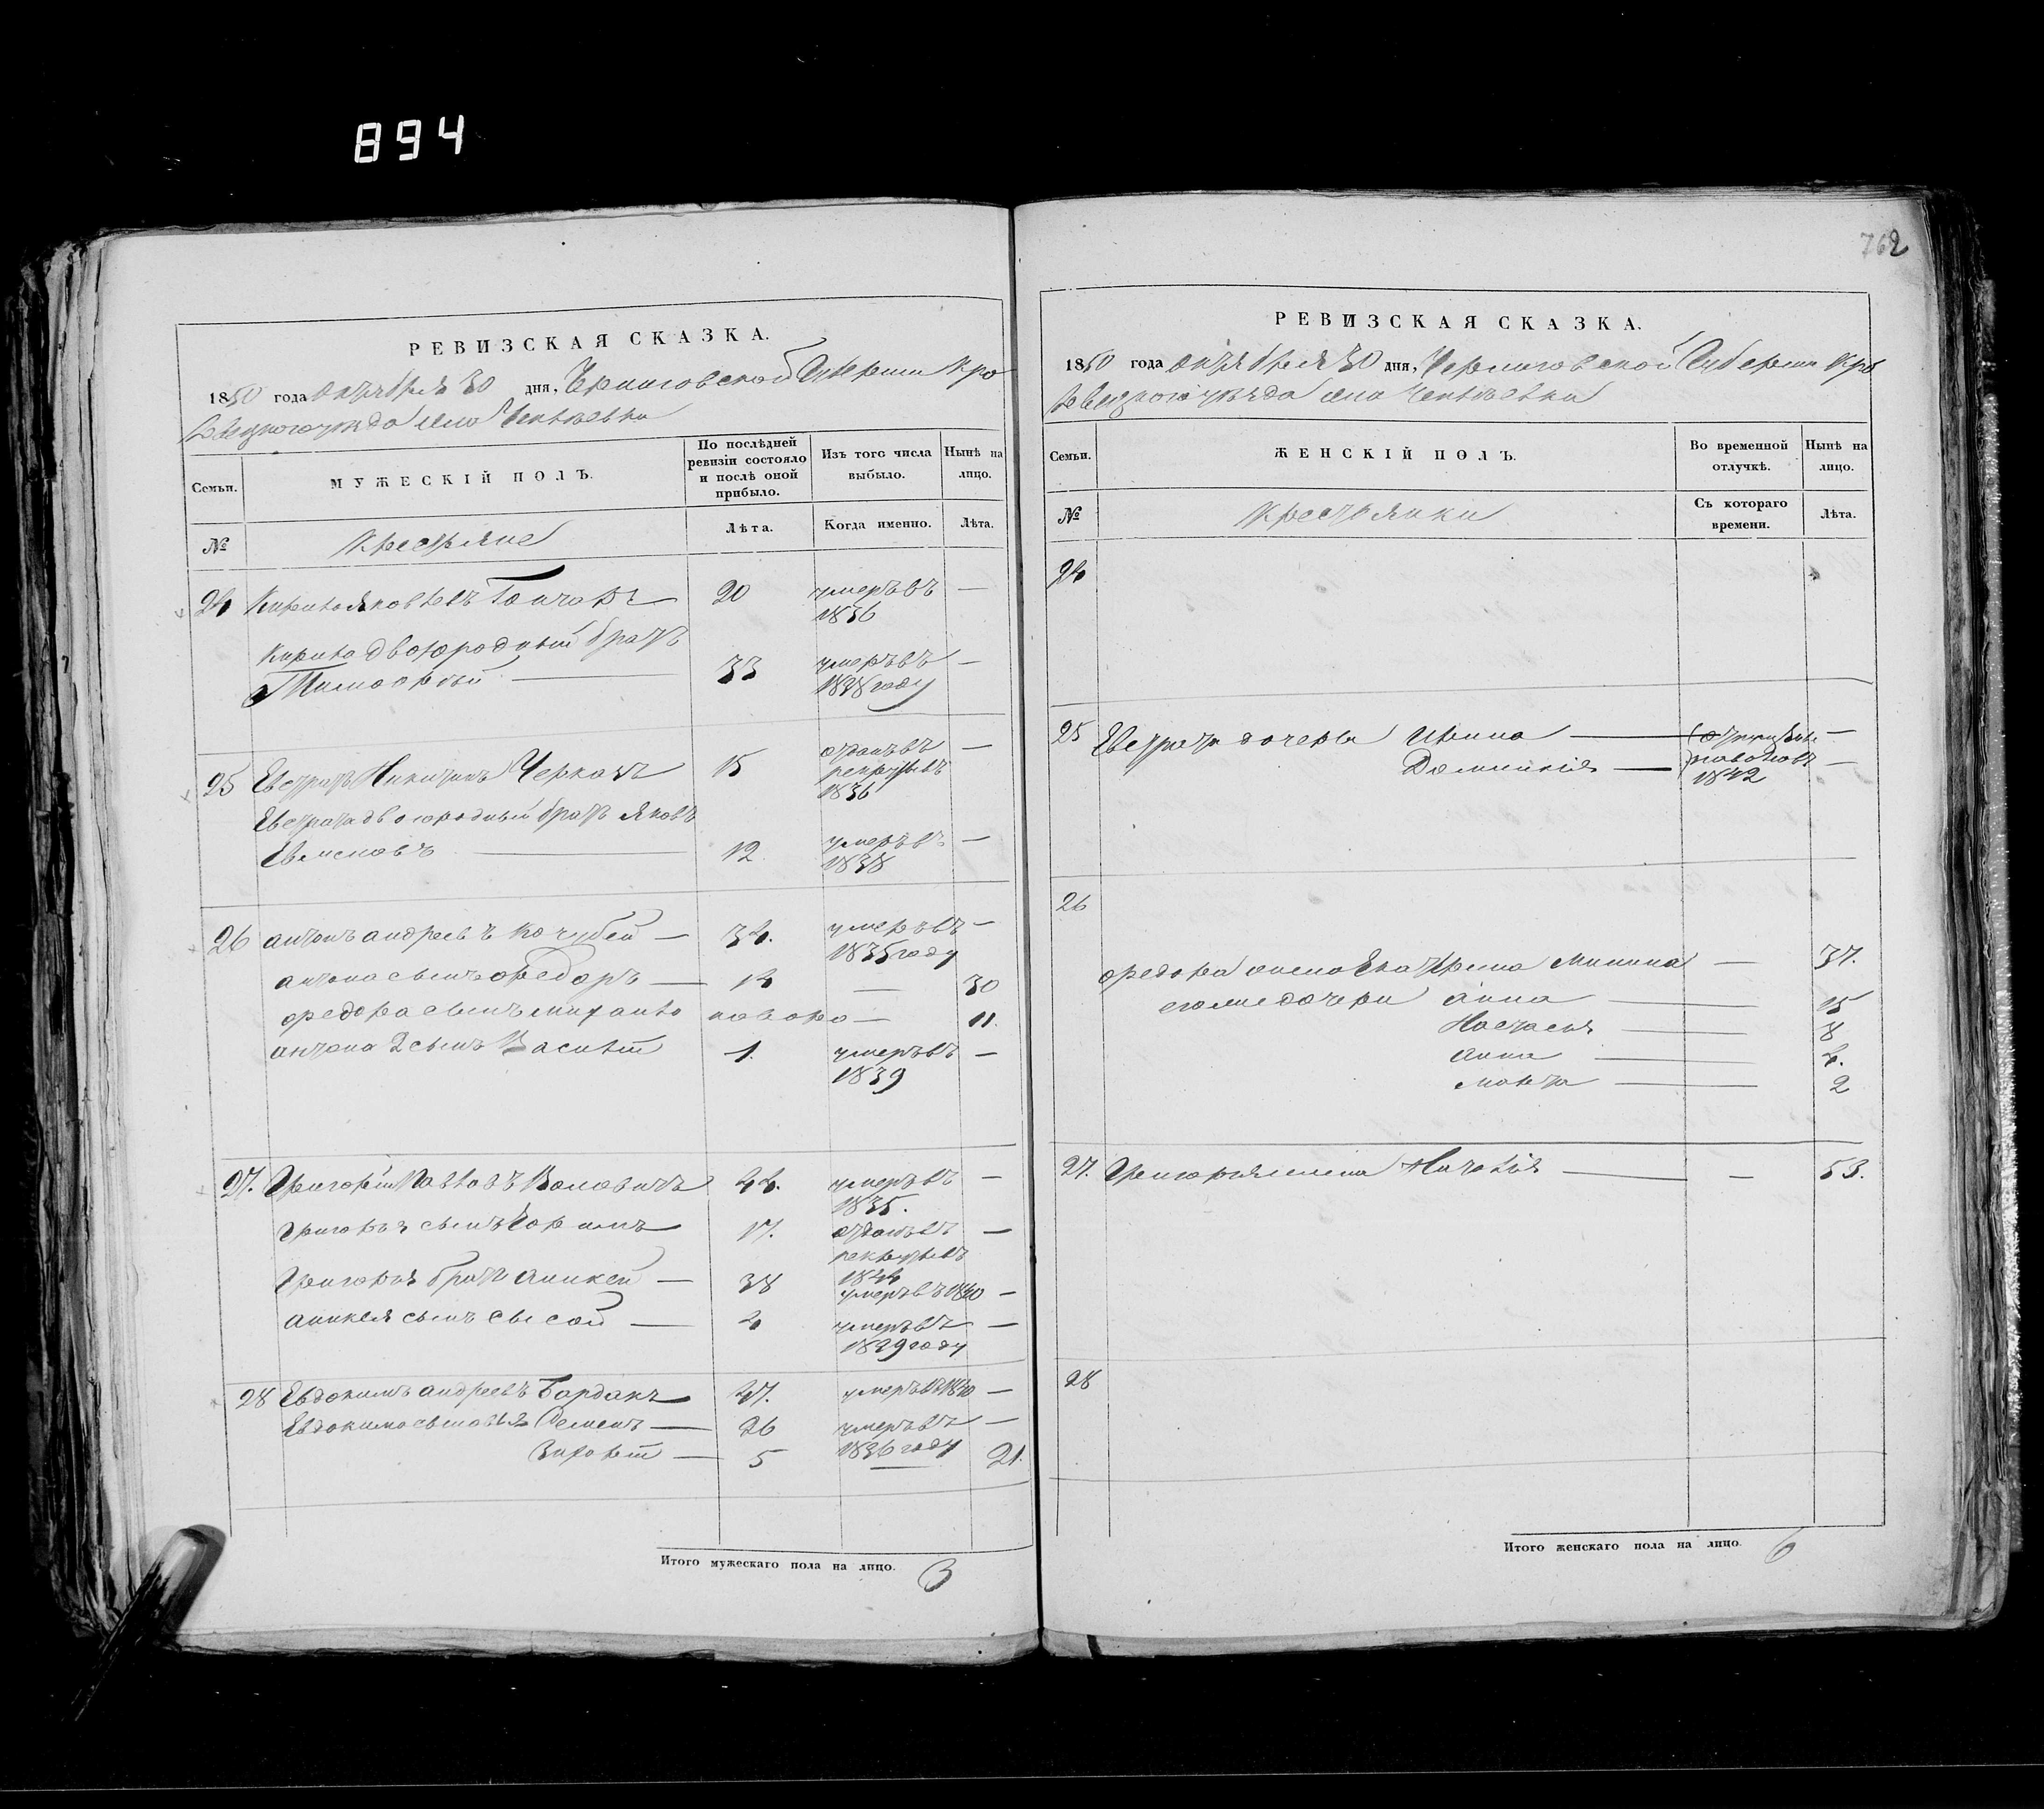 894
762
РЕВИЗСКАЯ СКАЗКА.
1850 года октября 30 дня, Черниговской Губернии Кро
левецкого уезда село Чепліевки
Семьи.
МУЖЕСКІЙ ПОЛЪ.
По послѣдней ревизіи состояло и послѣ оной прибыло.
Изъ того числа выбыло.
Нынѣ на лицо.
№
Крестьяне
Лѣта.
Когда именно.
Лѣта.
24 Кирило Яковлевъ Гончаръ 20 умеръ въ 1836 —
Кирила двоюродный братъ
Тимофей — 33 умеръ въ 1838 году —
25 Евстратъ Никитинъ Черкасъ 15 отданъ въ рекруты въ 1836 —
Евстрата двоюродный братъ Яковъ
— 12 умеръ въ 1838 —
26 Антонъ Андреевъ Кочубей — 34. умеръ въ 1835 году —
Антона сынъ Федоръ — 14 — 30
Федора сынъ Михаило новоро — 11.
Антона 2 сынъ Василій 1. умеръ въ 1839 —
27. Григорій Павловъ 44. умеръ въ 1835. —
Григорія сынъ 17. отданъ въ рекруты въ 1844 —
Григорія братъ Аникей — 38 умеръ въ 1840 —
Аникея сынъ Сысой — 4 умеръ въ 1839 году —
28 Евдокимъ Андреевъ Бардакъ 47. умеръ въ 1840 —
Евдокима сыновья Семенъ — 26 умеръ въ 1836 году —
— 5 — 21.
Итого мужескаго пола на лицо. 3
РЕВИЗСКАЯ СКАЗКА.
1850 года октября 30 дня, Черниговской Губернии Кро
левецкого уезда село Чепліевки
Семьи.
ЖЕНСКІЙ ПОЛЪ.
Во временной отлучкѣ.
Нынѣ на лицо.
№
Крестьянки
Съ котораго времени.
Лѣта.
24
25 Евстрата дочери Ирина — —
Домникія — 1842 —
26
Федора жена Екатерина Минина — 37.
его же дочери Анна — 15
Настасья — 8
Анна — 4.
Марта — 2
27. Григорія жена Наталія — — 53.
28
Итого женскаго пола на лицо. 6